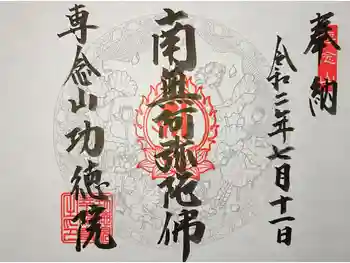 奉納
令和二年七月十一日
南無阿弥陀佛
専念山功徳院